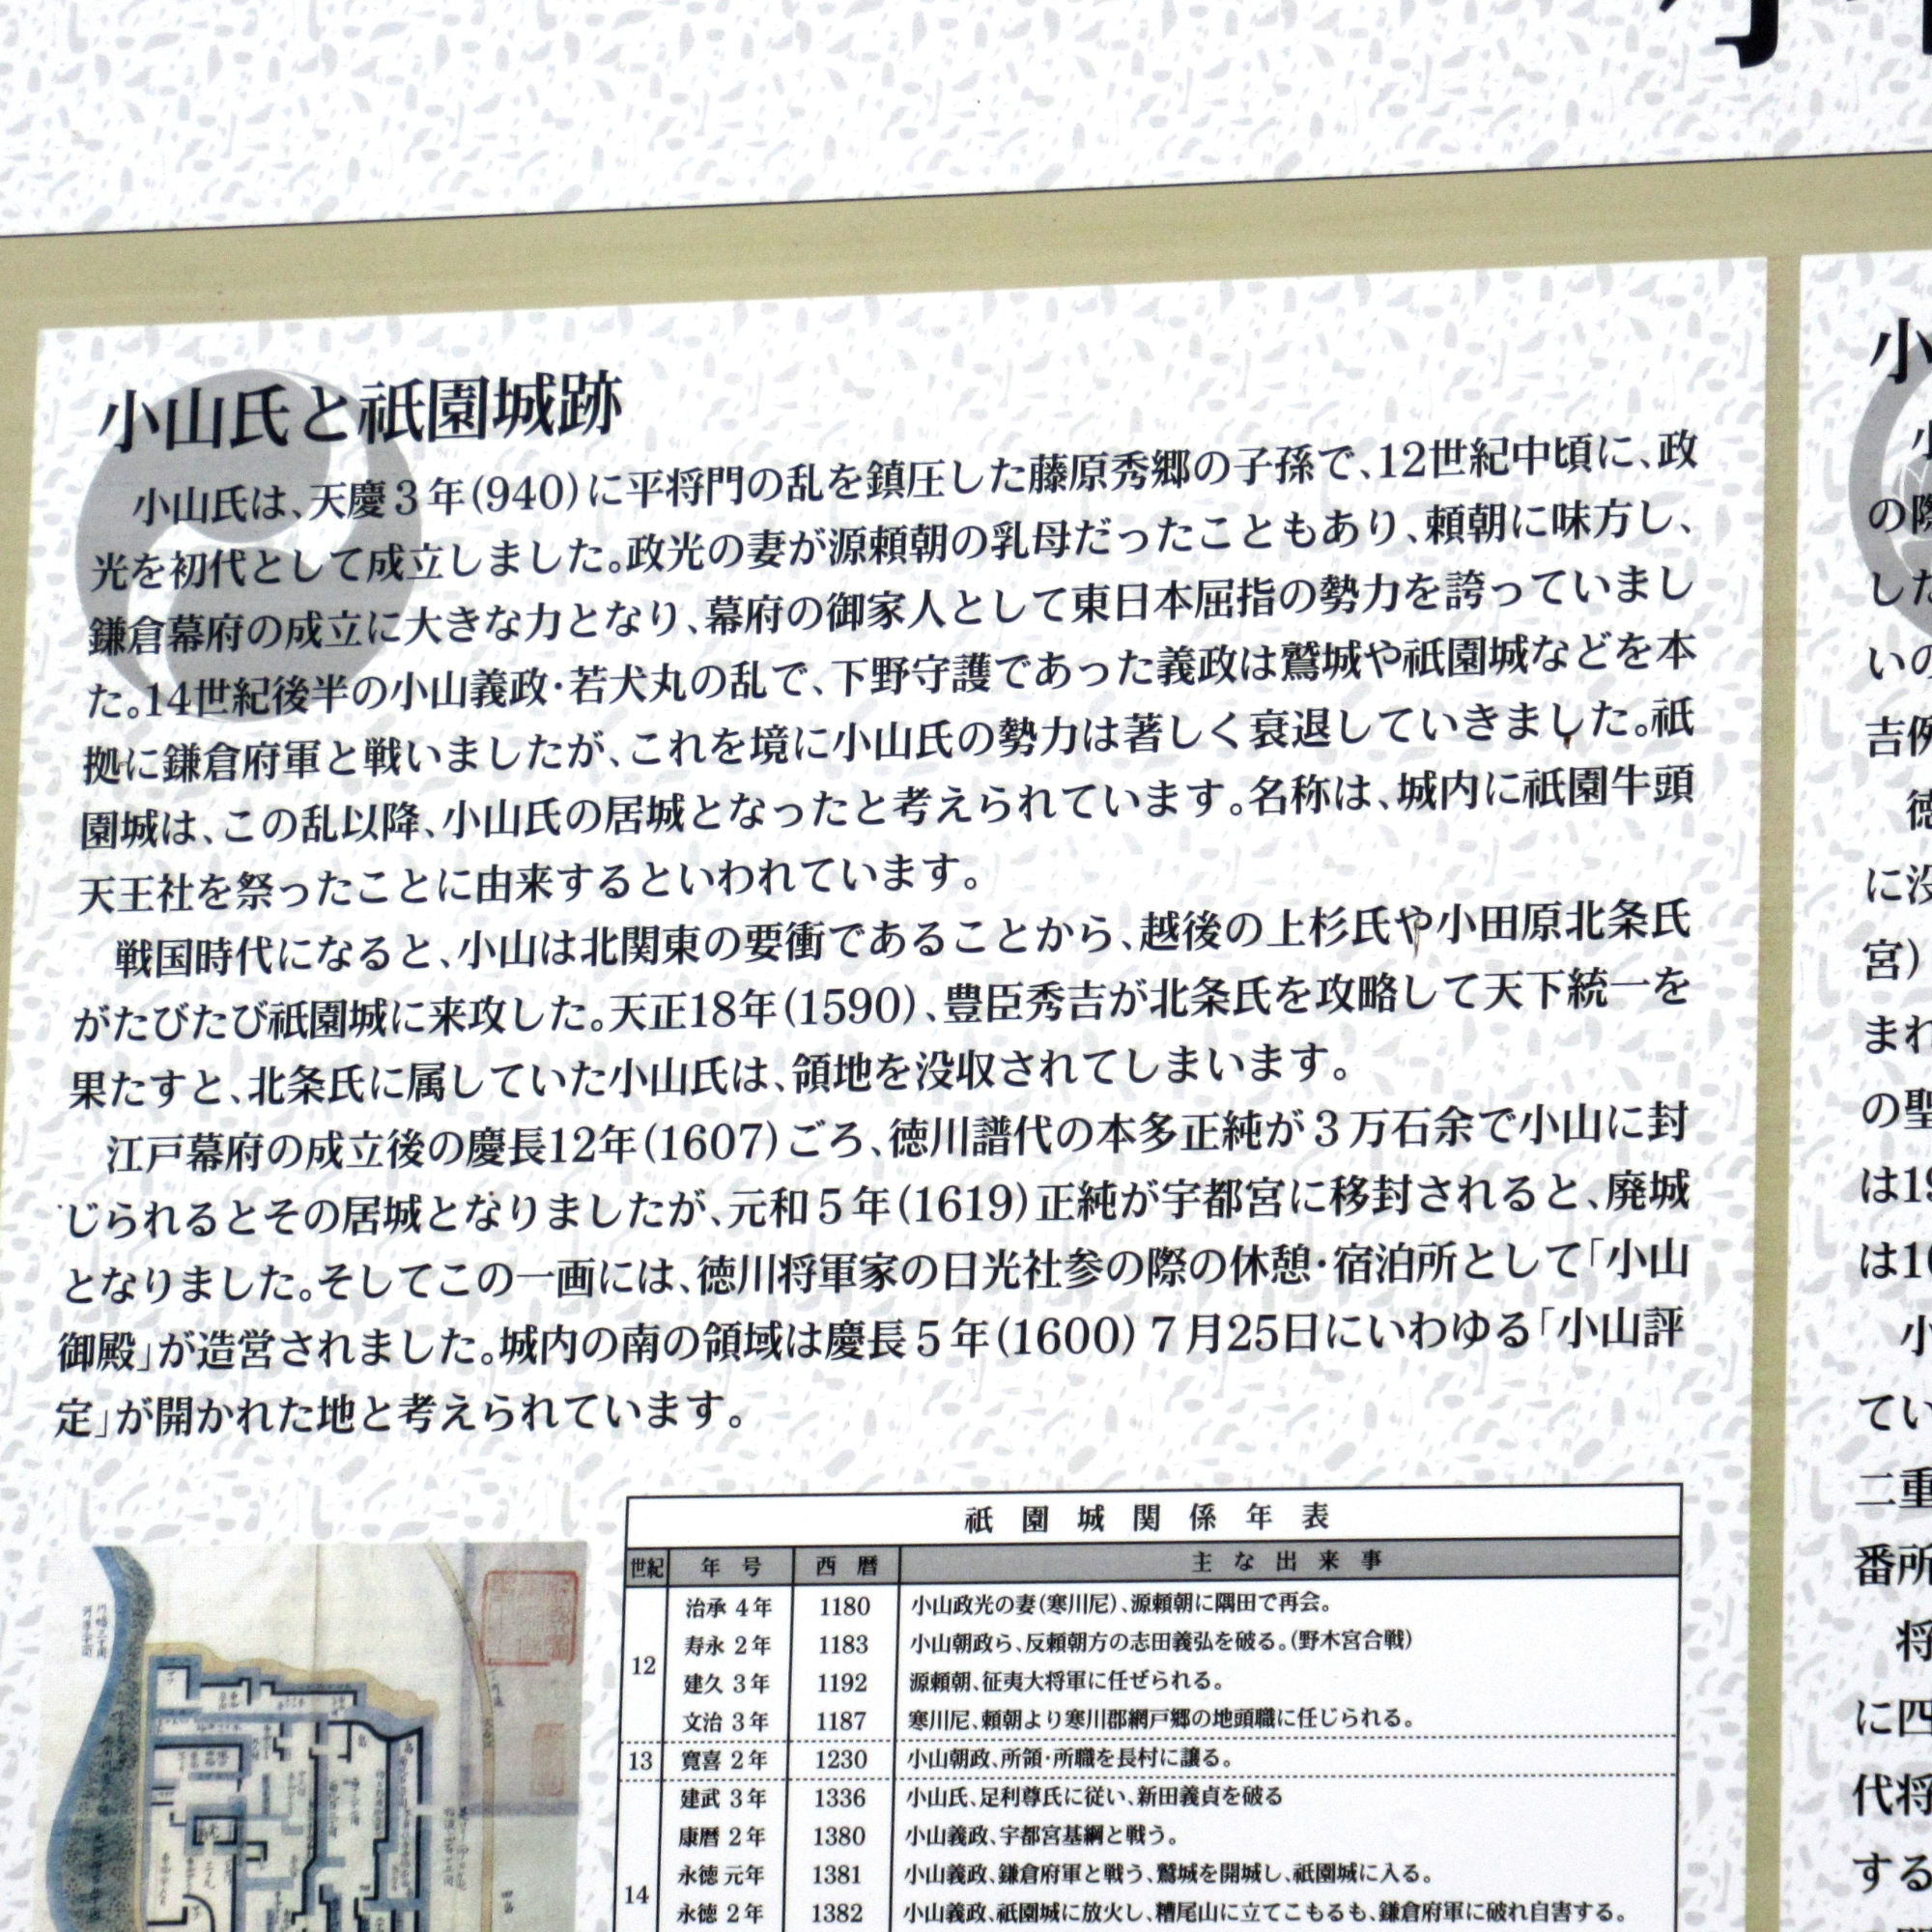 小山氏と祇園城跡
小山氏は、天慶3年(940)に平将門の乱を鎮圧した藤原秀郷の子孫で、12世紀中頃に、政
光を初代として成立しました。政光の妻が源頼朝の乳母だったこともあり、頼朝に味方し、
鎌倉幕府の成立に大きな力となり、幕府の御家人として東日本屈指の勢力を誇っていまし
た。14世紀後半の小山義政・若犬丸の乱で、下野守護であった義政は鷲城や祇園城などを本
拠に鎌倉府軍と戦いましたが、これを境に小山氏の勢力は著しく衰退していきました。祇
園城は、この乱以降、小山氏の居城となったと考えられています。名称は、城内に祇園牛頭
天王社を祭ったことに由来するといわれています。
戦国時代になると、小山は北関東の要衝であることから、越後の上杉氏や小田原北条氏
がたびたび祇園城に来攻した。天正18年(1590)、豊臣秀吉が北条氏を攻略して天下統一を
果たすと、北条氏に属していた小山氏は、領地を没収されてしまいます。
江戸幕府の成立後の慶長12年(1607)ごろ、徳川譜代の本多正純が3万石余で小山に封
じられるとその居城となりましたが、元和5年(1619)正純が宇都宮に移封されると、廃城
となりました。そしてこの一画には、徳川将軍家の日光社参の際の休憩・宿泊所として「小山
御殿」が造営されました。城内の南の領域は慶長5年(1600)7月25日にいわゆる「小山評
定」が開かれた地と考えられています。
祇園城関係年表
世紀 年号 西暦 主な出来事
12
治承4年 1180 小山政光の妻(寒川尼)、源頼朝に隅田で再会。
寿永2年 1183 小山朝政ら、反頼朝方の志田義弘を破る。(野木宮合戦)
建久3年 1192 源頼朝、征夷大将軍に任ぜられる。
文治3年 1187 寒川尼、頼朝より寒川郡網戸郷の地頭職に任じられる。
13 寛喜2年 1230 小山朝政、所領・所職を長村に譲る。
14
建武3年 1336 小山氏、足利尊氏に従い、新田義貞を破る
康暦2年 1380 小山義政、宇都宮基綱と戦う。
永徳元年 1381 小山義政、鎌倉府軍と戦う、鷲城を開城し、祇園城に入る。
永徳2年 1382 小山義政、祇園城に放火し、糟尾山に立てこもるも、鎌倉府軍に破れ自害する。
小
小
の際
した
いの
吉例
徳
に没
宮)
まれ
の聖
は19
は16
小
てい
二重
番所
将
に四
代将
する